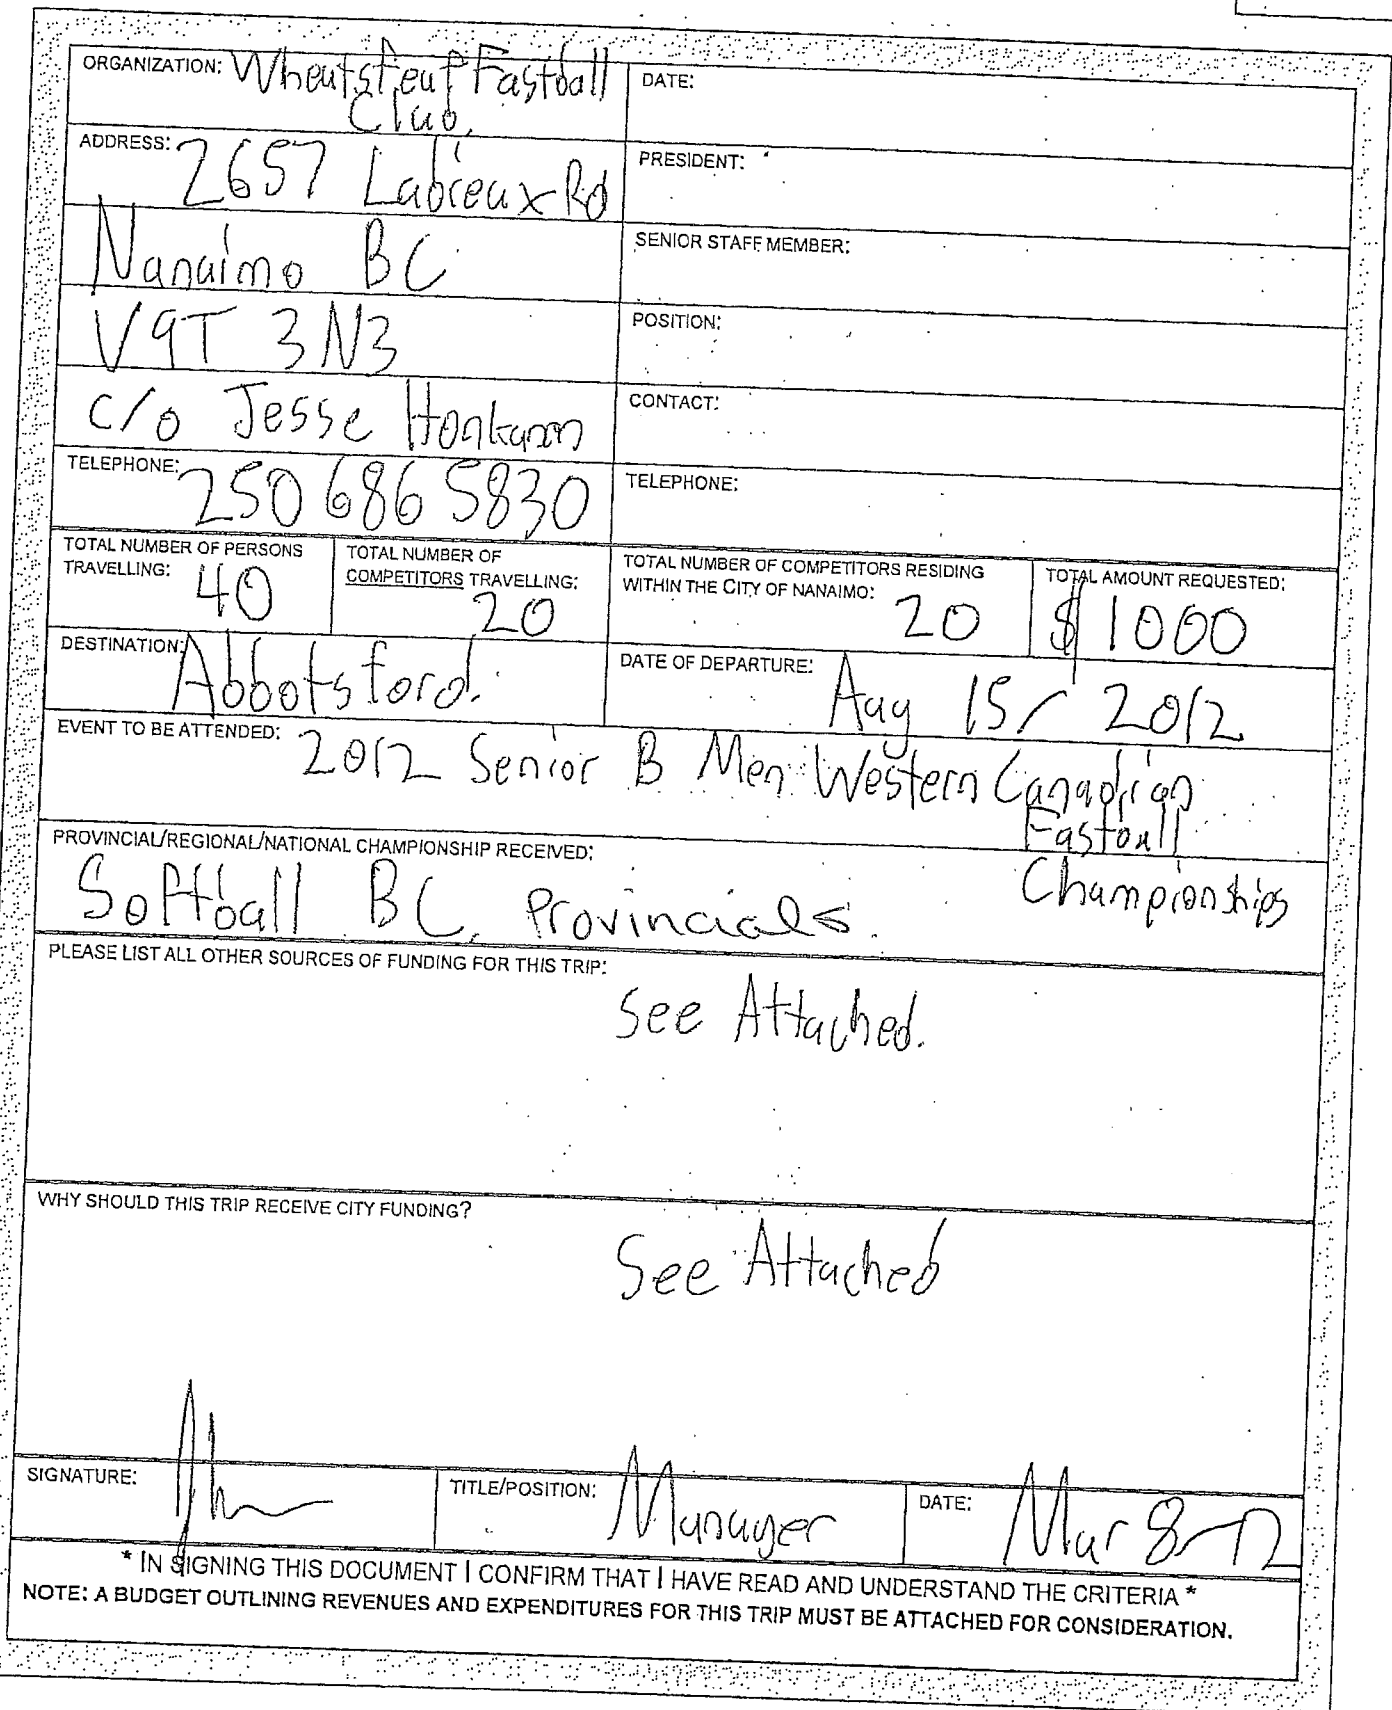 ORGANIZATION: Wheatsheaf Fastball
Club.
DATE:
ADDRESS: 2657 Labieux Rd
PRESIDENT:
Nanaimo BC
SENIOR STAFF MEMBER:
V9T 3N3
POSITION:
c/o Jesse Honkanen
CONTACT:
TELEPHONE: 250 686 5830
TELEPHONE:
TOTAL NUMBER OF PERSONS
TRAVELLING: 40
TOTAL NUMBER OF
COMPETITORS TRAVELLING:
20
TOTAL NUMBER OF COMPETITORS RESIDING
WITHIN THE CITY OF NANAIMO: 20
TOTAL AMOUNT REQUESTED:
$1000
DESTINATION: Abbotsford.
DATE OF DEPARTURE: Aug 15/2012
EVENT TO BE ATTENDED: 2012 Senior B Men Western Canadian
Fastball
Championships
PROVINCIAL/REGIONAL/NATIONAL CHAMPIONSHIP RECEIVED:
Softball BC. Provincials.
PLEASE LIST ALL OTHER SOURCES OF FUNDING FOR THIS TRIP:
See Attached.
WHY SHOULD THIS TRIP RECEIVE CITY FUNDING?
See Attached
SIGNATURE:
TITLE/POSITION: Manager
DATE: Mar 8-12
* IN SIGNING THIS DOCUMENT I CONFIRM THAT I HAVE READ AND UNDERSTAND THE CRITERIA *
NOTE: A BUDGET OUTLINING REVENUES AND EXPENDITURES FOR THIS TRIP MUST BE ATTACHED FOR CONSIDERATION.